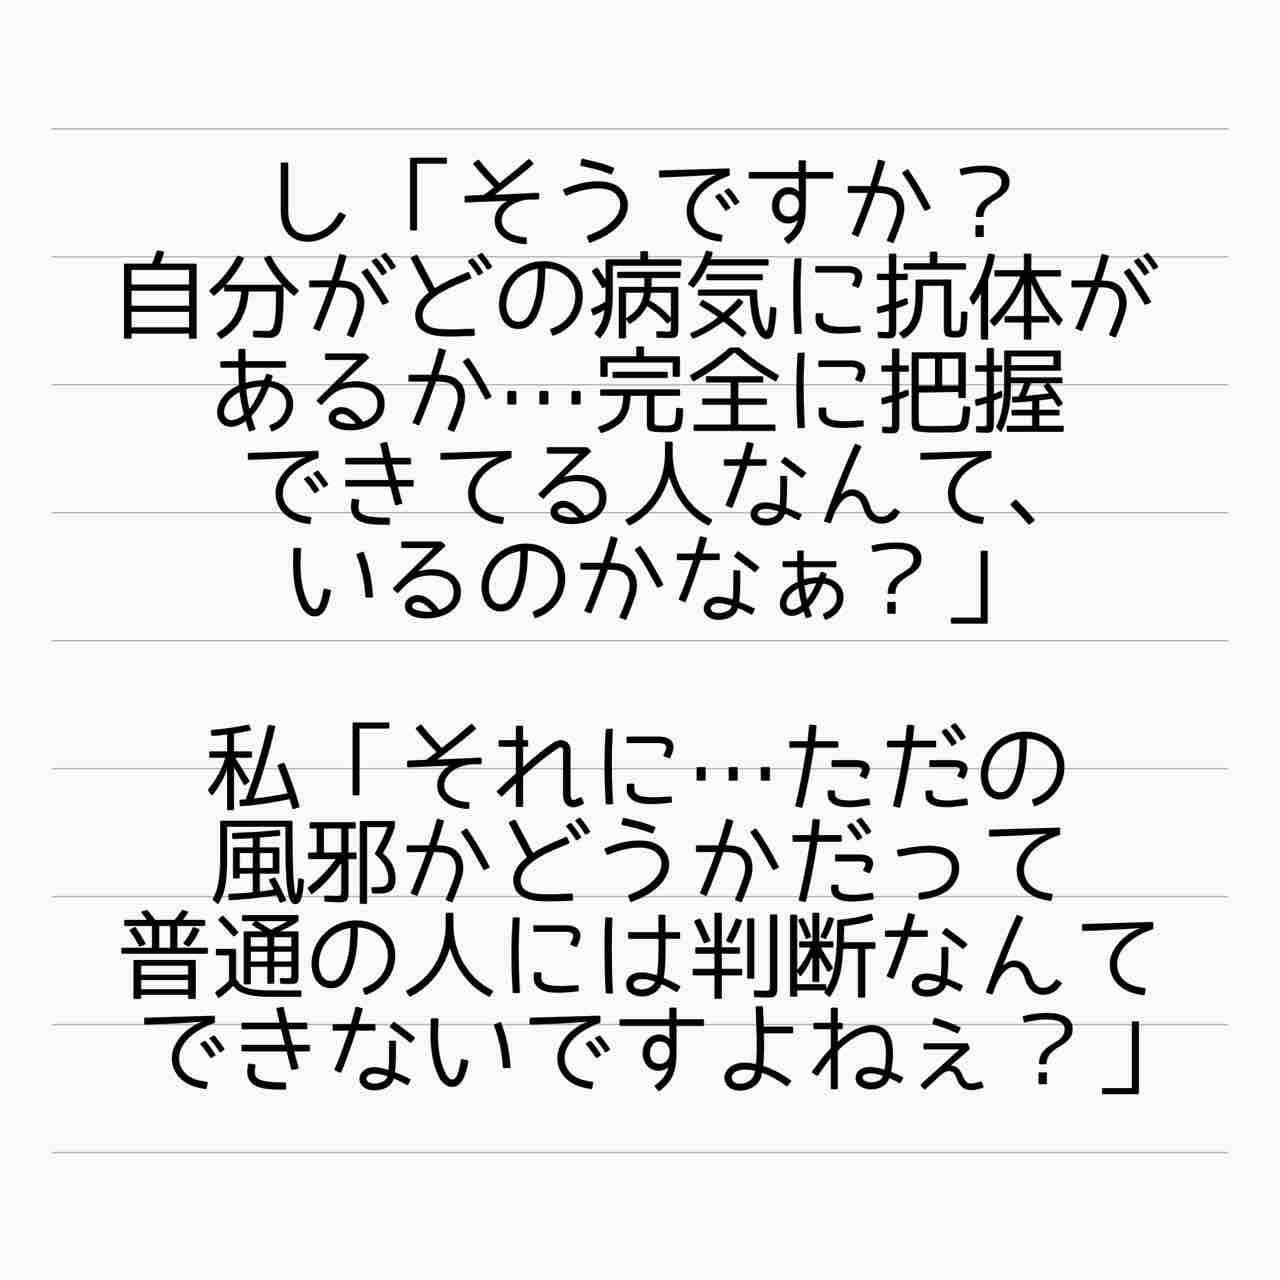 し「そうですか？
自分がどの病気に抗体が
あるか…完全に把握
できてる人なんて、
いるのかなぁ？」
私「それに…ただの
風邪かどうかだって
普通の人には判断なんて
できないですよねぇ？」